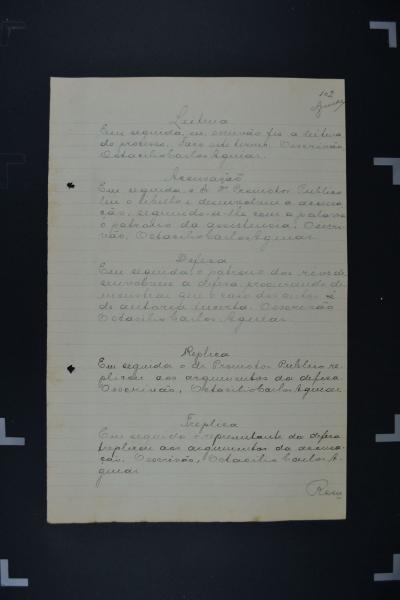 102
Leitura
Em seguida, eu, escrivão fiz a leitura
do processo. Faço este termo. O escrivão
Octacilio Carlos Aguiar.
Accusação
Em seguida o Sr. Dr. Promotor Publico
leu o libello e desenvolveu a accusa-
ção, seguindo-se-lhe com a palavra
o patrono da assistencia. O escri-
vão, Octacilio Carlos Aguiar.
Defesa
Em seguida o patrono dos réos de
senvolveu a defesa procurando de
monstrar que o caso dos autos é
de autoria incerta. O escrivão
Octacilio Carlos Aguiar.
Replica
Em seguida o dr. Promotor Publico re-
plicou aos argumentos da defesa.
O escrivão, Octacilio Carlos Aguiar.
Treplica
Em seguida o representante da defesa
treplicou aos argumentos da accusa-
ção. O escrivão, Octacilio Carlos A-
guiar